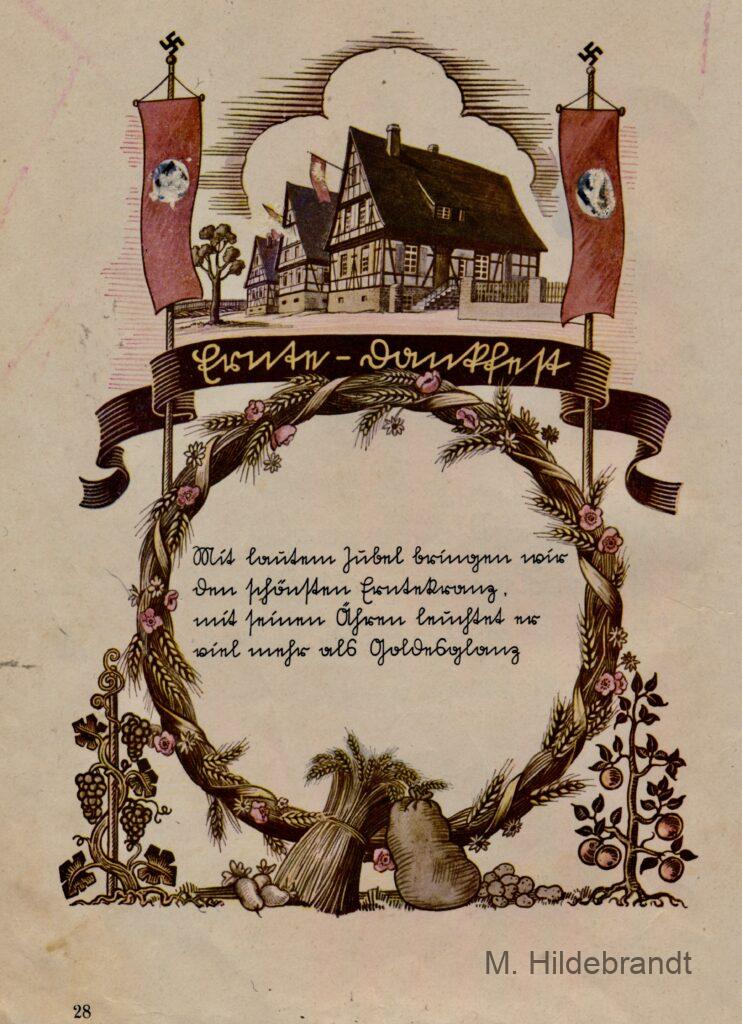 Ernte-Dankfest
Mit lautem Jubel bringen wir
den schönsten Erntekranz,
mit seinen Ähren leuchtet er
viel mehr als Goldesglanz
M. Hildebrandt
28